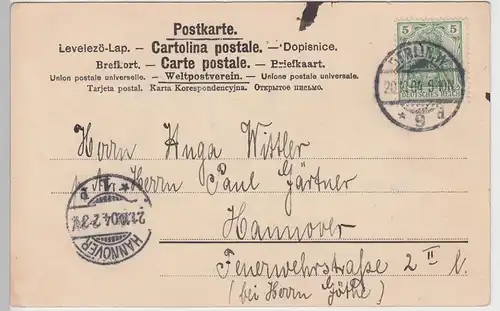 Postkarte.
Levelezö-Lap. — Cartolina postale. — Dopisnice.
Brefkort. — Carte postale. — Briefkaart.
Union postale universelle. — Weltpostverein. — Unione postale universale.
Tarjeta postal. Karta Korespondencyjna. Открытое письмо.
5 5
DEUTSCHES REICH
BERLIN.W.
9 d
Herrn Hugo Wittler
Herrn Paul Gärtner
Hannover
Feuerwehrstraße 2 II l.
(bei Herrn Göthe)
HANNOVER
1 b